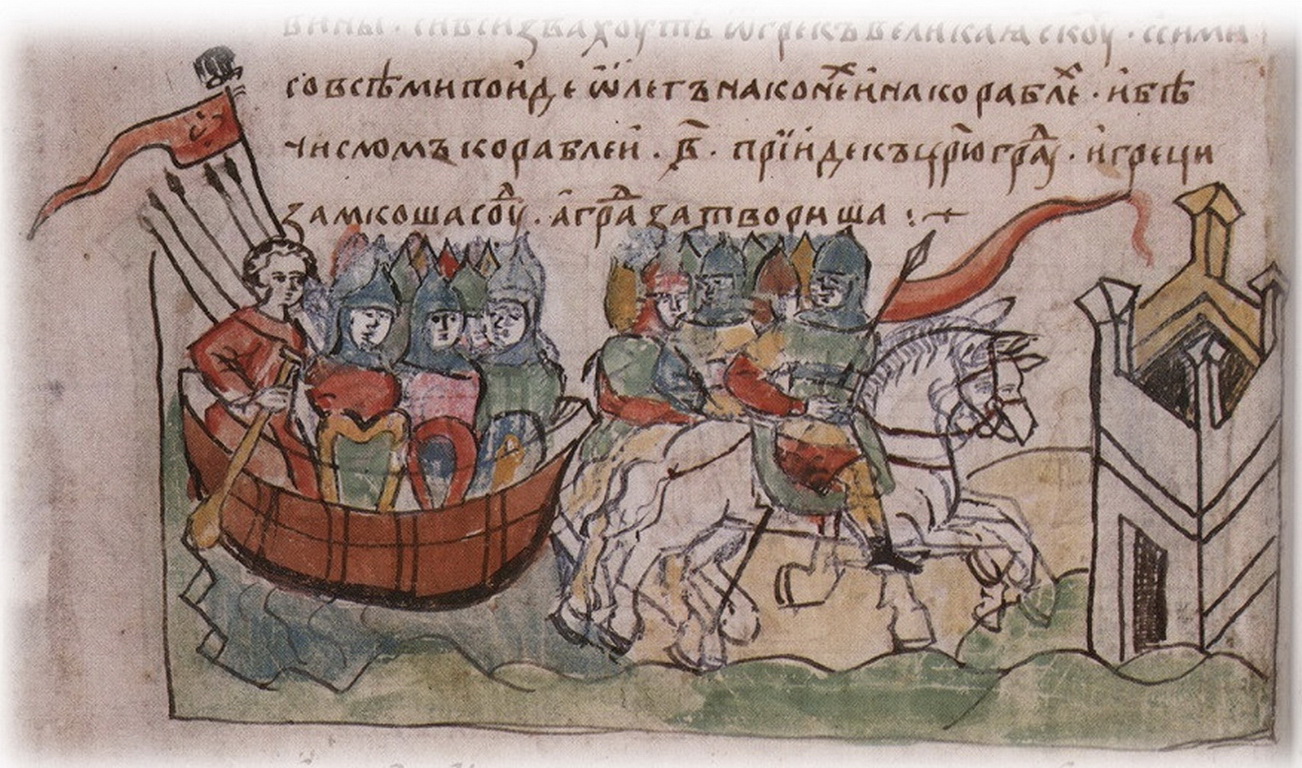 вины · си вси звахоуть ѿ грекъ великаꙗ скоуⷴ · с сими
со всѣми поиде ѡлегъ на конеⷯ и на кораблеⷯ · и бѣ
числомъ кораблей · в҃ · прїиде къ цр҃юграⷣ · и греци
замкоша соуⷣ · а граⷣ затвориша :~